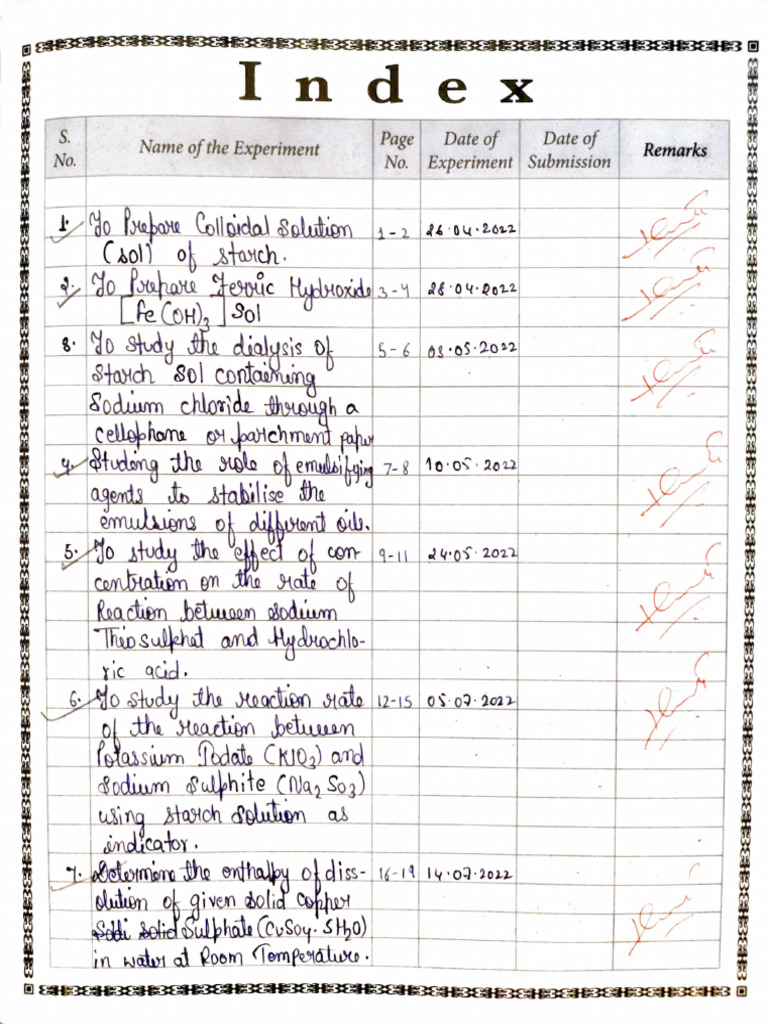 Index
S. No. Name of the Experiment Page No. Date of Experiment Date of Submission Remarks
1. To Prepare Colloidal Solution 1-2 26.04.2022
(sol) of starch.
2. To Prepare Ferric Hydroxide 3-4 28.04.2022
[Fe(OH)3] Sol
3. To study the dialysis of 5-6 03.05.2022
Starch Sol containing
Sodium chloride through a
cellophane or parchment paper
4. Studing the role of emulsifying 7-8 10.05.2022
agents to stabilise the
emulsions of different oils.
5. To study the effect of con- 9-11 24.05.2022
centration on the rate of
Reaction between Sodium
Thiosulphat and Hydrochlo-
ric acid.
6. To study the reaction rate 12-15 05.07.2022
of the reaction between
Potassium Iodate (KIO3) and
Sodium Sulphite (Na2SO3)
using starch Solution as
indicator.
7. Determine the enthalpy of diss- 16-19 14.07.2022
olution of given Solid Copper
Sulphate (CuSO4.5H2O)
in water at Room Temperature.